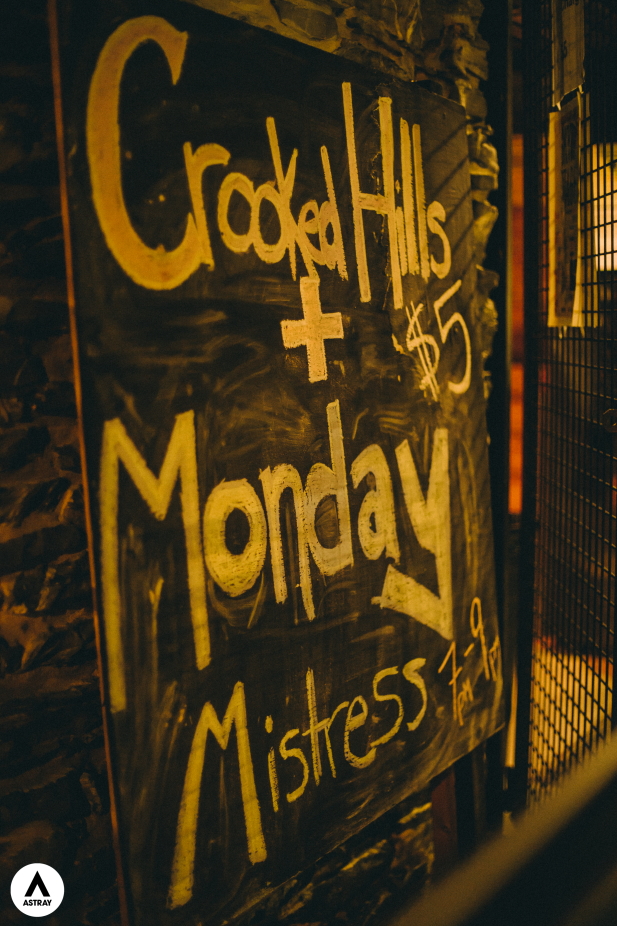 Crooked Hills
+
$5
Monday
Mistress
7PM-9PM
ASTRAY